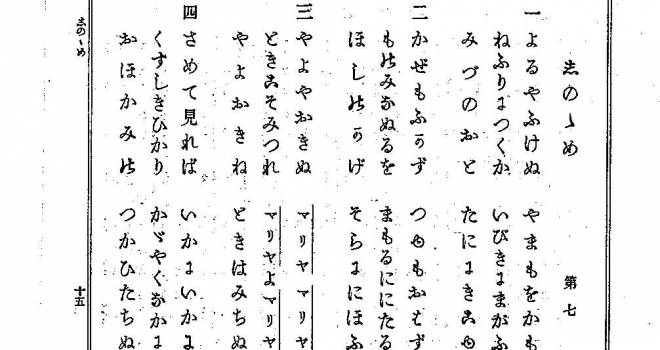 志のゝめ 第七
一 よるやふけぬ やまもをかも
ねふりにつくか いびきにまがふ
みづのおと たににきこゆ
二 かぜもふかず つゆも
ものみなぬるを まもるににたる
ほしのかげ そらににほふ
三 やよやおきぬ マリヤ マリヤ
ときこそみつれ マリヤよマリヤ
やよおきね ときはみちぬ
四 さめて見れば いかにいかに
くずしきひかり かゞやくなかに
おほかみの つかひたちぬ
志のゝめ 十五